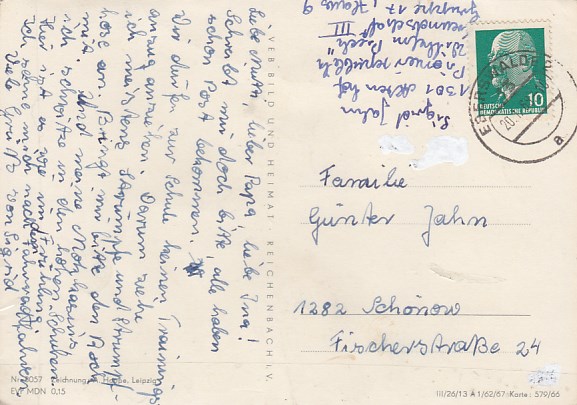 Liebe Mutti, lieber Papa, liebe Ina!
Schreibt mir doch bitte, alle haben
schon Post bekommen.
Wir dürfen zur Schule keinen Trainings-
anzug anziehen. Darum ziehe
ich meistens Strümpfe und Strumpf-
hose an. Bringt mir bitte den Rock
mit. Und meine
ich schwitze in den hohen Schuhen
Hier ist es wie im Frühling.
Ich sehne mich nach
Viele Grüße von Sigrid
VEB BILD UND HEIMAT · REICHENBACH I. V.
Sigrid Jahn
1301 Altenhof
Pionierrepublik
"Wilhelm Pieck"
Freundschaft III
Gruppe 17, Haus 9
EBERSWALDE
20.
a
10
DEUTSCHE
DEMOKRATISCHE REPUBLIK
Familie
Günter Jahn
1282 Schönow
Fischerstraße 24
Nr. 3057 Zeichnung: Leipzig
EVP MDN 0,15
III/26/13 A 1/62/67 Karte: 579/66